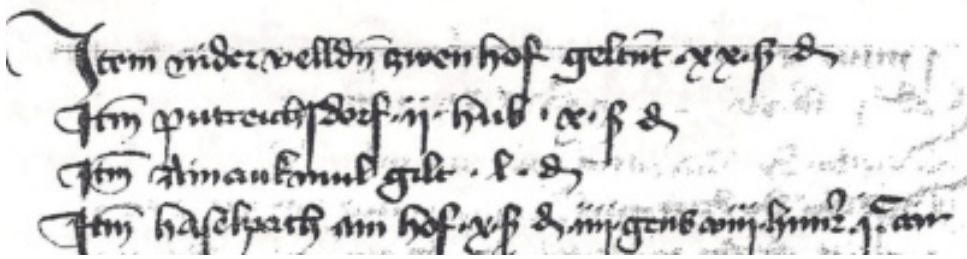 Item nider velldn̄ zwen hof geltn̄t · xx · ß d
Itm̄ puttreichstorf · ii · hub · x · ß d
Itm̄ mul gilt · l · d
Itm̄ haselpach ain hof · x · ß d · iiii · gens · viii · hunr̄